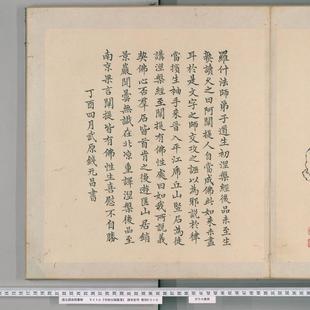 羅什法師弟子道生初涅槃經後品未至生
槃讀久之曰阿闡提人自當成佛此如來未盡
耳於是文字之師交攻之誣以為邪說於律
當擯生袖手來晉入平江虎丘山竪石為徒
講涅槃經至闡提有佛性處曰如我所說義
契佛心否羣石皆首肯之後遊匡山居銷
景巖聞曇無讖在北涼重譯涅槃後品至
南京果言闡提皆有佛性生喜慰不自勝
丁酉四月武原錢元昌書